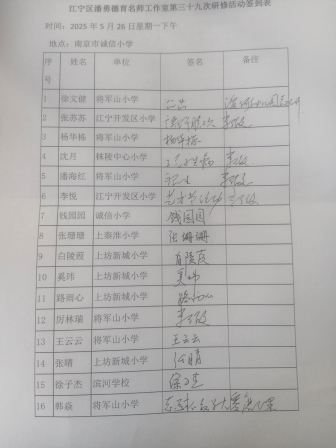 江宁区潘勇德育名师工作室第三十九次研修活动签到表
时间：2025 年 5 月 26 日星期一下午
地点：南京市诚信小学
序号 姓名 单位 签名 备注
1 徐文健 将军山小学 公出
2 张苏苏 江宁开发区小学 请假
3 杨华栋 将军山小学 杨华栋
4 沈月 秣陵中心小学
5 潘海红 将军山小学
6 李悦 江宁开发区小学
7 钱园园 诚信小学 钱园园
8 张珊珊 上秦淮小学 张珊珊
9 白陵葭 上坊新城小学 白陵葭
10 奚玮 上坊新城小学 奚玮
11 路雨心 上坊新城小学 路雨心
12 厉林瑞 将军山小学
13 王云云 将军山小学 王云云
14 张晴 上坊新城小学 张晴
15 徐子杰 滨河学校 徐子杰
16 韩焱 将军山小学